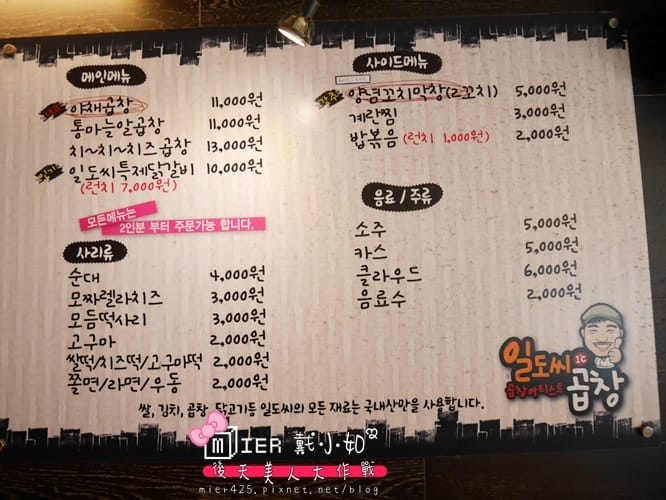 메인메뉴
야채곱창 11,000원
통마늘알곱창 11,000원
치~치~치즈곱창 13,000원
일도씨특제닭갈비 10,000원
(런치 7,000원)
모든메뉴는
2인분 부터 주문가능 합니다.
사리류
순대 4,000원
모짜렐라치즈 3,000원
모듬떡사리 3,000원
고구마 2,000원
쌀떡/치즈떡/고구마떡 2,000원
쫄면/라면/우동 2,000원
사이드메뉴
양념꼬치막창(2꼬치) 5,000원
계란찜 3,000원
밥볶음 (런치 1,000원) 2,000원
음료/주류
소주 5,000원
카스 5,000원
클라우드 6,000원
음료수 2,000원
일도씨 1℃
곱창아티스트 곱창
쌀, 김치, 곱창, 닭고기등 일도씨의 모든 재료는 국내산만을 사용합니다.
MIER 戴小如
後天美人大作戰
mier425.pixnet.net/blog